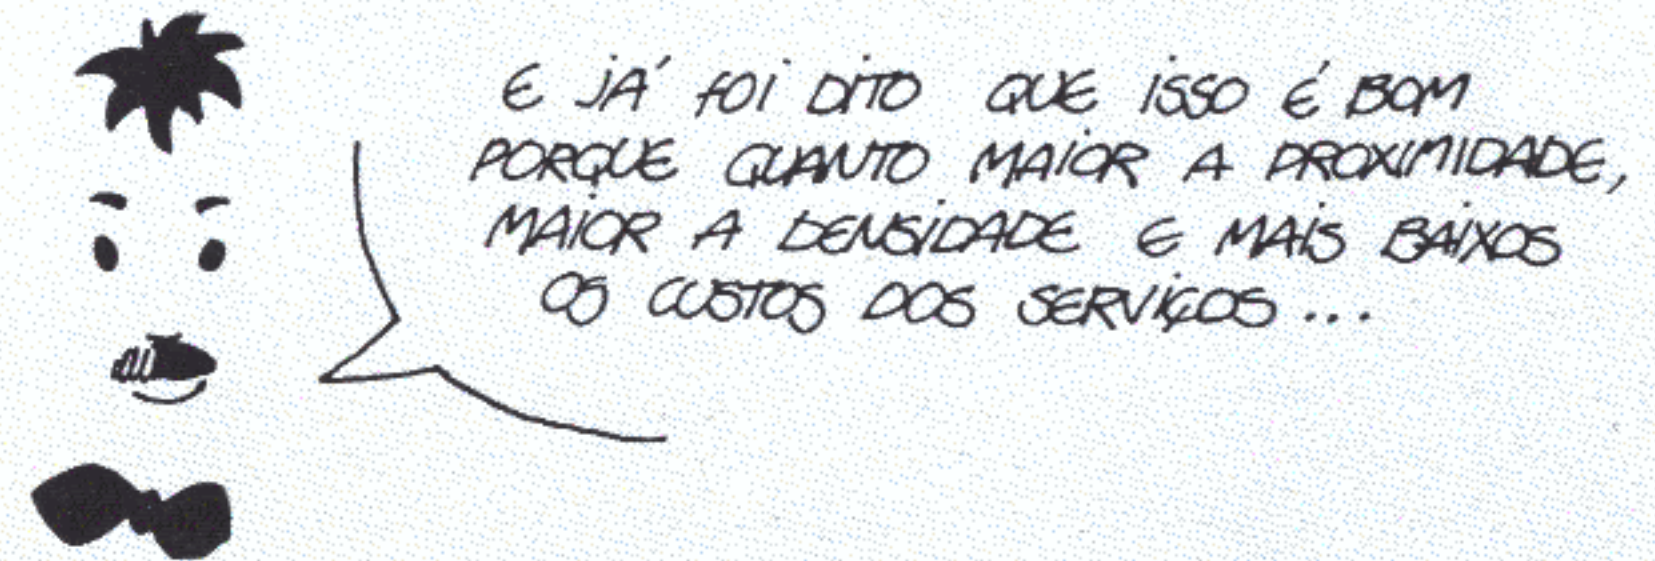 E JÁ FOI DITO QUE ISSO É BOM
PORQUE QUANTO MAIOR A PROXIMIDADE,
MAIOR A DENSIDADE E MAIS BAIXOS
OS CUSTOS DOS SERVIÇOS...